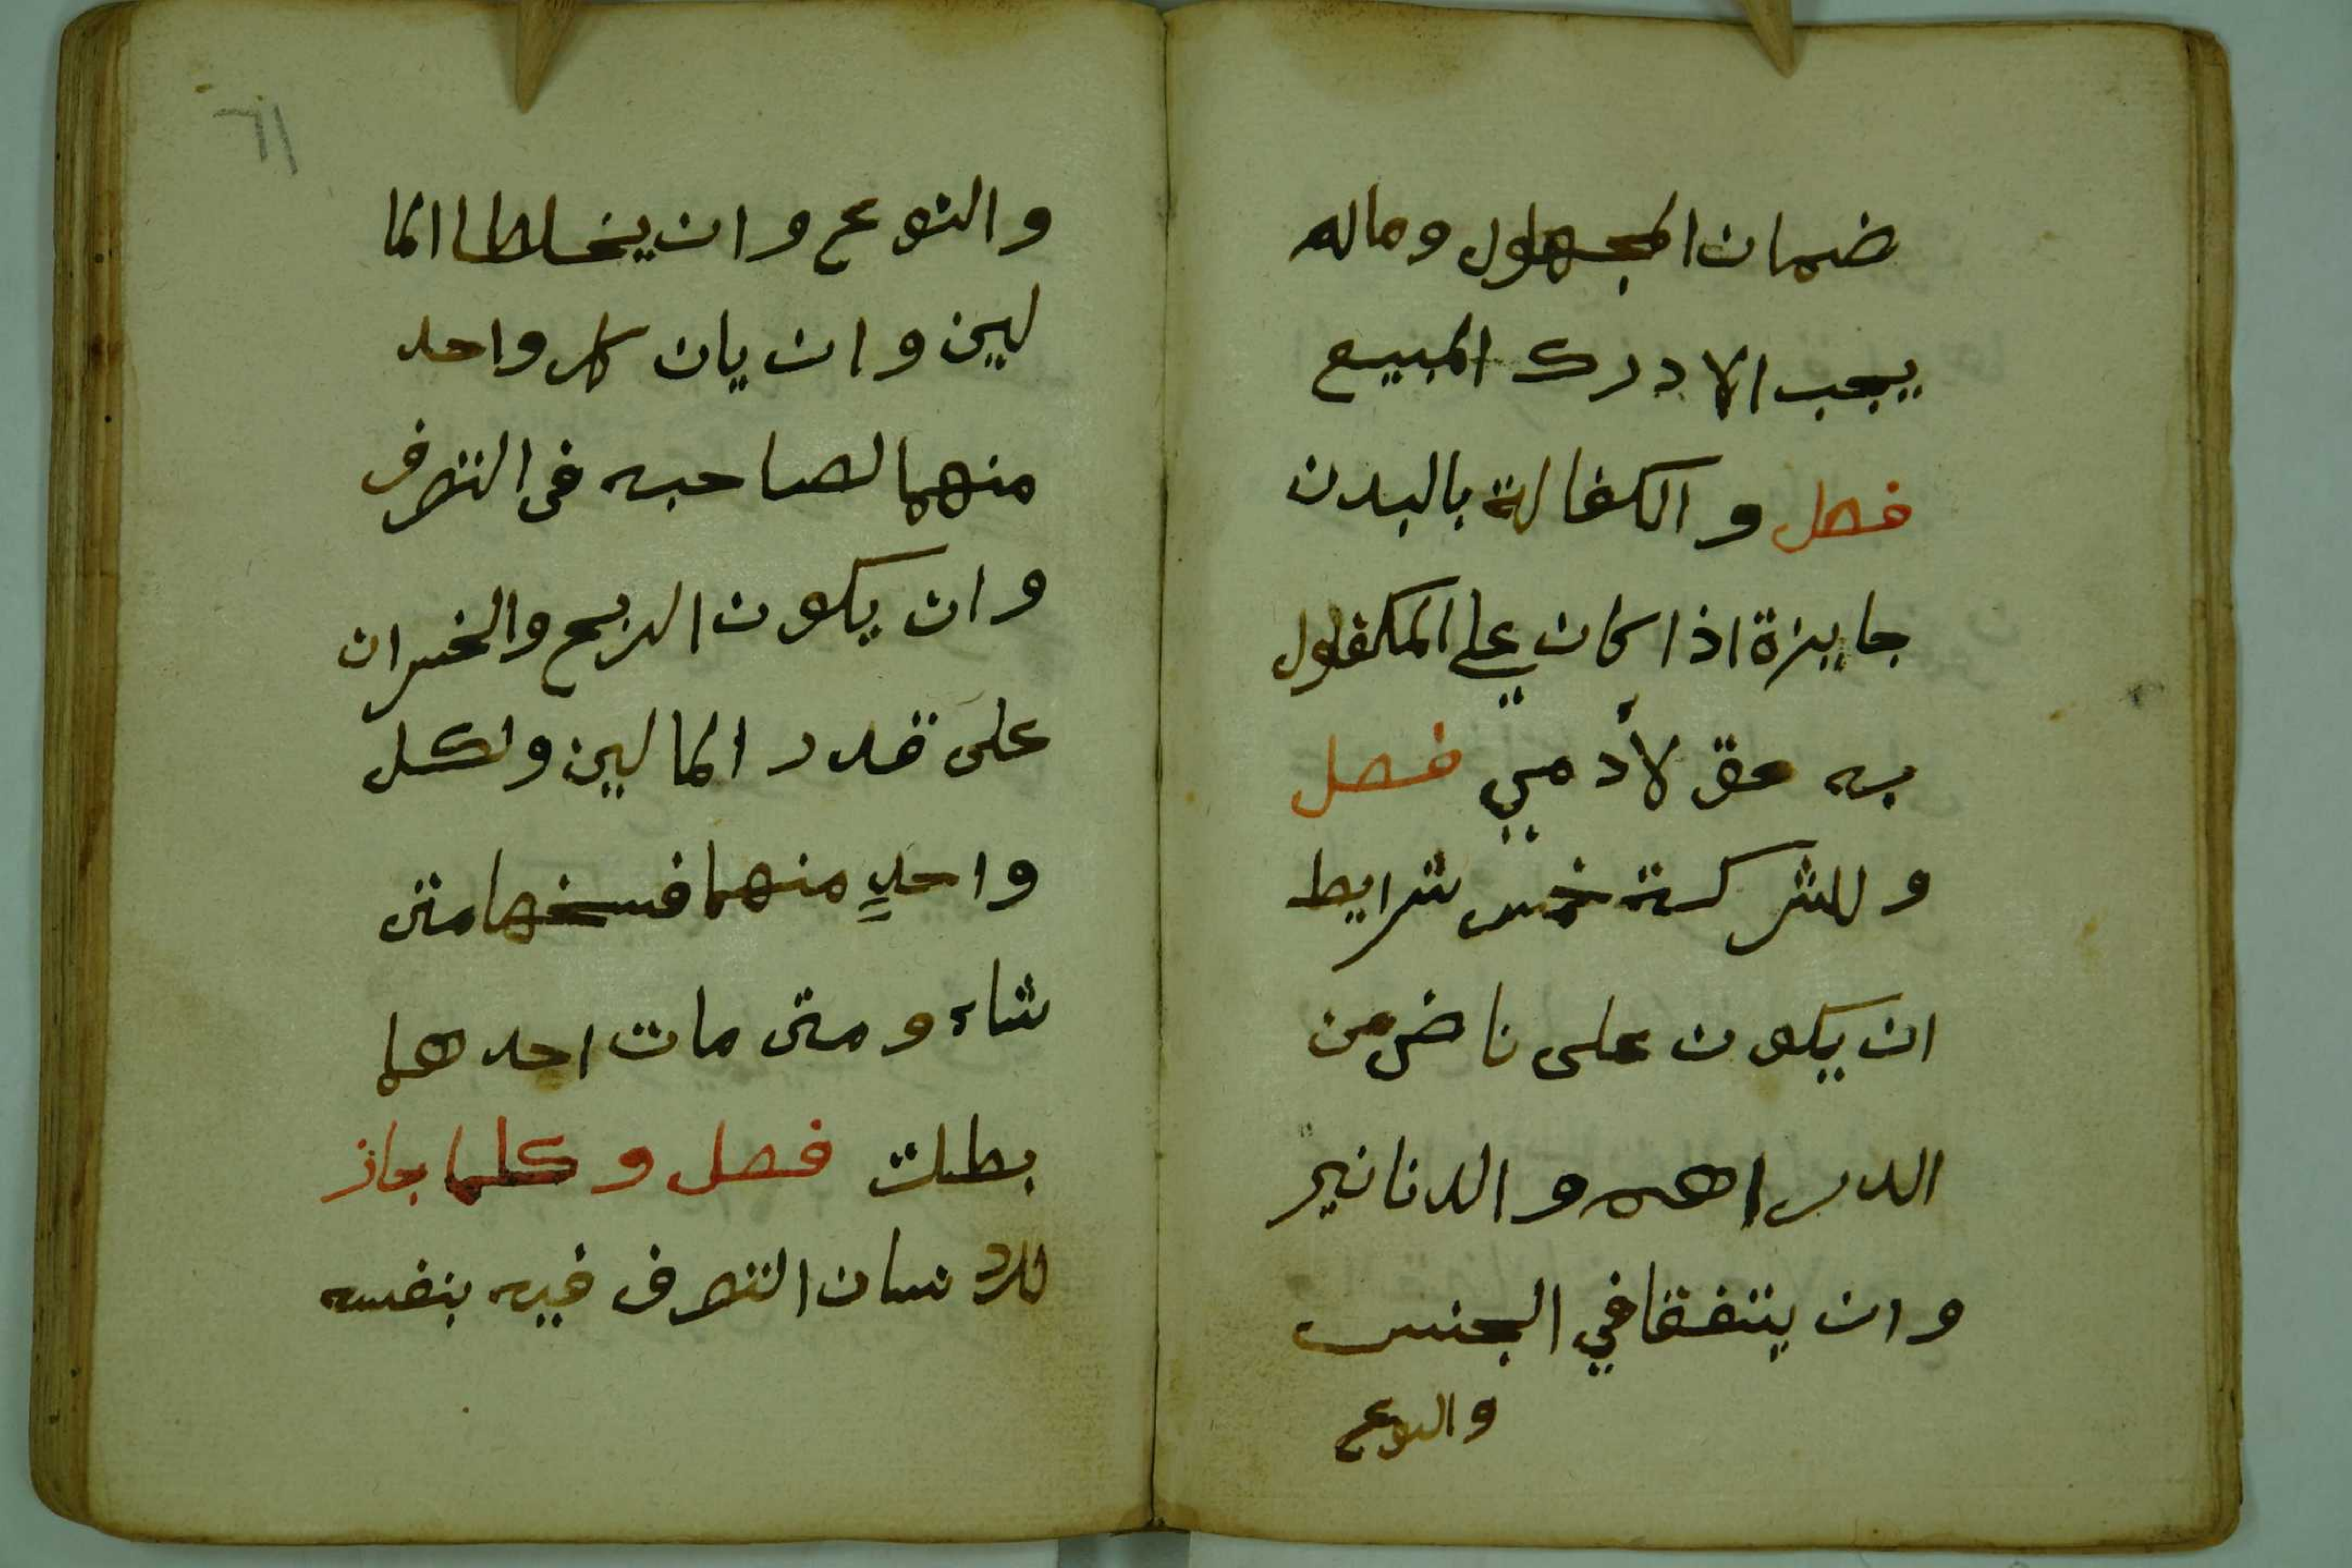 ضمان المجهول وماله
يجب الا درك المبيع
فصل و الكفالة بالبدن
جايزة اذا كان علي المكفول
به حق لأدمي فصل
و للشركة خمس شرايط
ان يكون على ناض من
الدراهم و الدنانير
و ان يتفقا في الجنس
والنوع
٦١
والنوع و ان يخلطا الما
لين و ان يان كل واحد
منهما لصاحبه في التصرف
و ان يكون الربح والخسران
على قدر المالين ولكل
واحدٍ منهما فسخها متى
شاء و متى مات احدهما
بطلت فصل و كلما جاز
للانسان التصرف فيه بنفسه